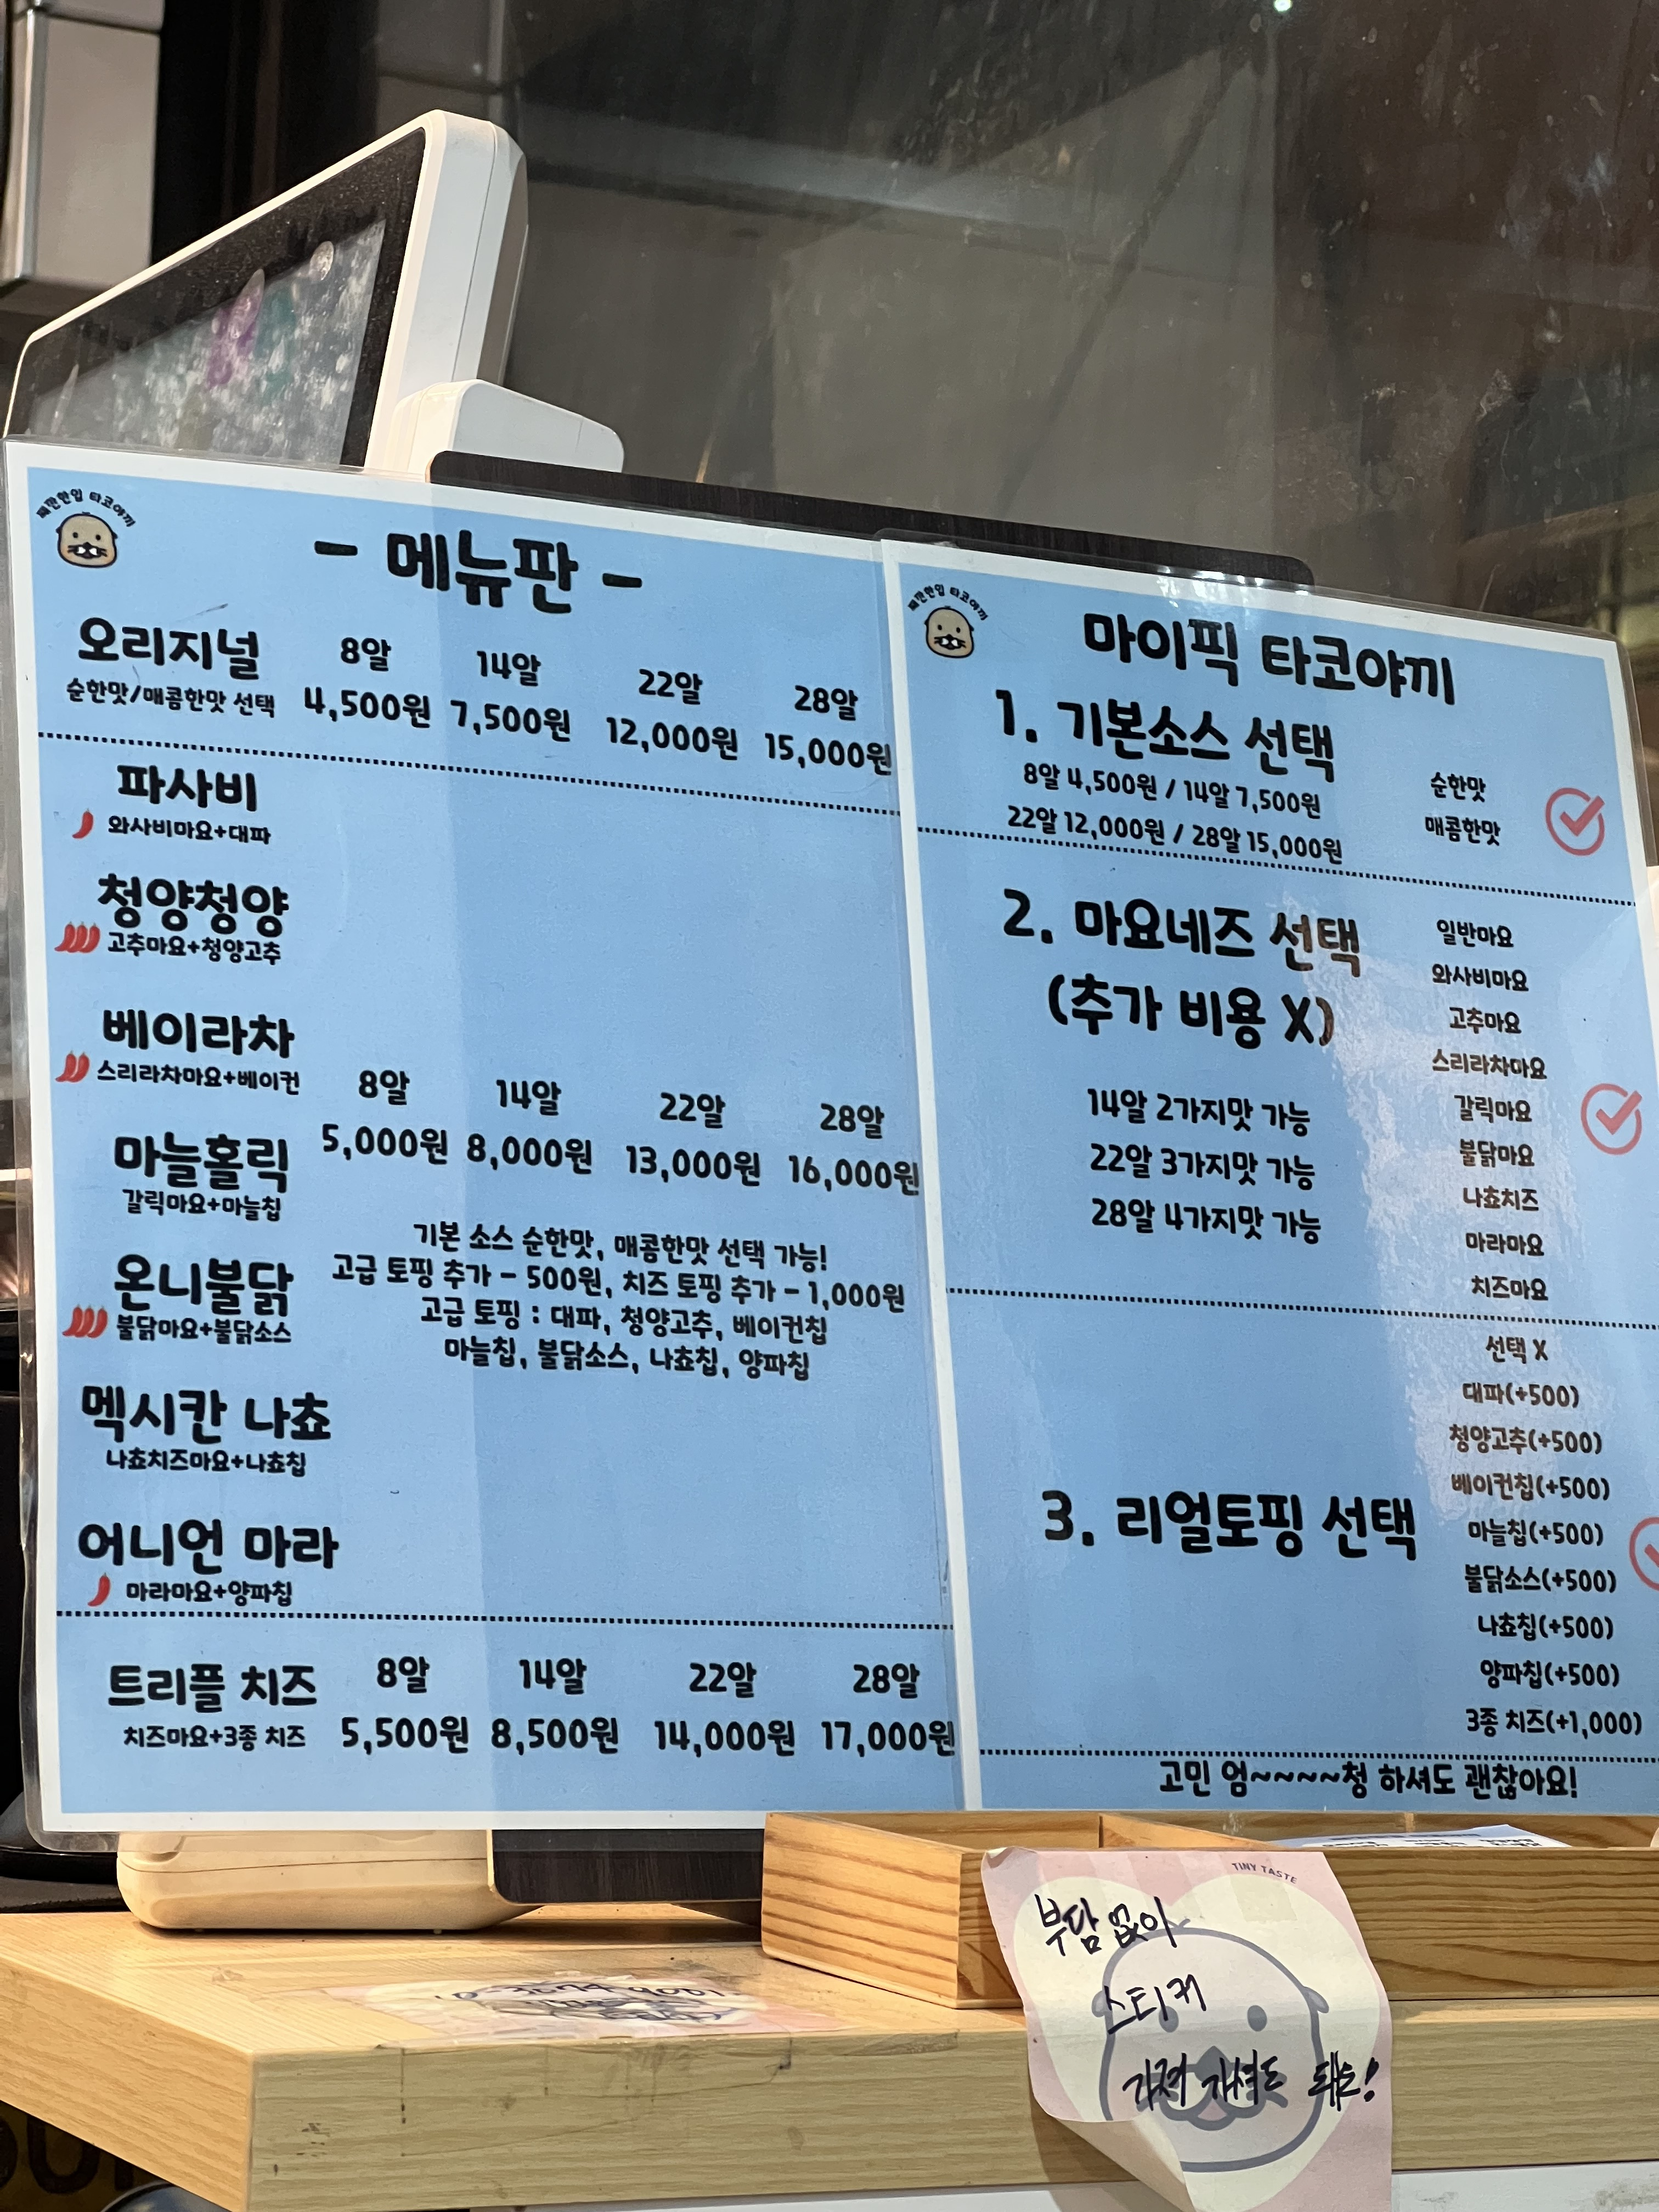 타코야끼
- 메뉴판 -
오리지널
순한맛/매콤한맛 선택
8알 14알 22알 28알
4,500원 7,500원 12,000원 15,000원
파사비
와사비마요+대파
청양청양
고추마요+청양고추
베이라차
스리라차마요+베이컨
마늘홀릭
갈릭마요+마늘칩
온니불닭
불닭마요+불닭소스
멕시칸 나쵸
나쵸치즈마요+나쵸칩
어니언 마라
마라마요+양파칩
8알 14알 22알 28알
5,000원 8,000원 13,000원 16,000원
기본 소스 순한맛, 매콤한맛 선택 가능!
고급 토핑 추가 - 500원, 치즈 토핑 추가 - 1,000원
고급 토핑 : 대파, 청양고추, 베이컨칩
마늘칩, 불닭소스, 나쵸칩, 양파칩
트리플 치즈
치즈마요+3종 치즈
8알 14알 22알 28알
5,500원 8,500원 14,000원 17,000원
타코야끼
마이픽 타코야끼
1. 기본소스 선택
8알 4,500원 / 14알 7,500원
22알 12,000원 / 28알 15,000원
순한맛
매콤한맛
2. 마요네즈 선택
(추가 비용 X)
14알 2가지맛 가능
22알 3가지맛 가능
28알 4가지맛 가능
일반마요
와사비마요
고추마요
스리라차마요
갈릭마요
불닭마요
나쵸치즈
마라마요
치즈마요
3. 리얼토핑 선택
선택 X
대파(+500)
청양고추(+500)
베이컨칩(+500)
마늘칩(+500)
불닭소스(+500)
나쵸칩(+500)
양파칩(+500)
3종 치즈(+1,000)
고민 엄~~~~청 하셔도 괜찮아요!
TINY TASTE
부담 없이
스티커
가져 가셔도 돼요!